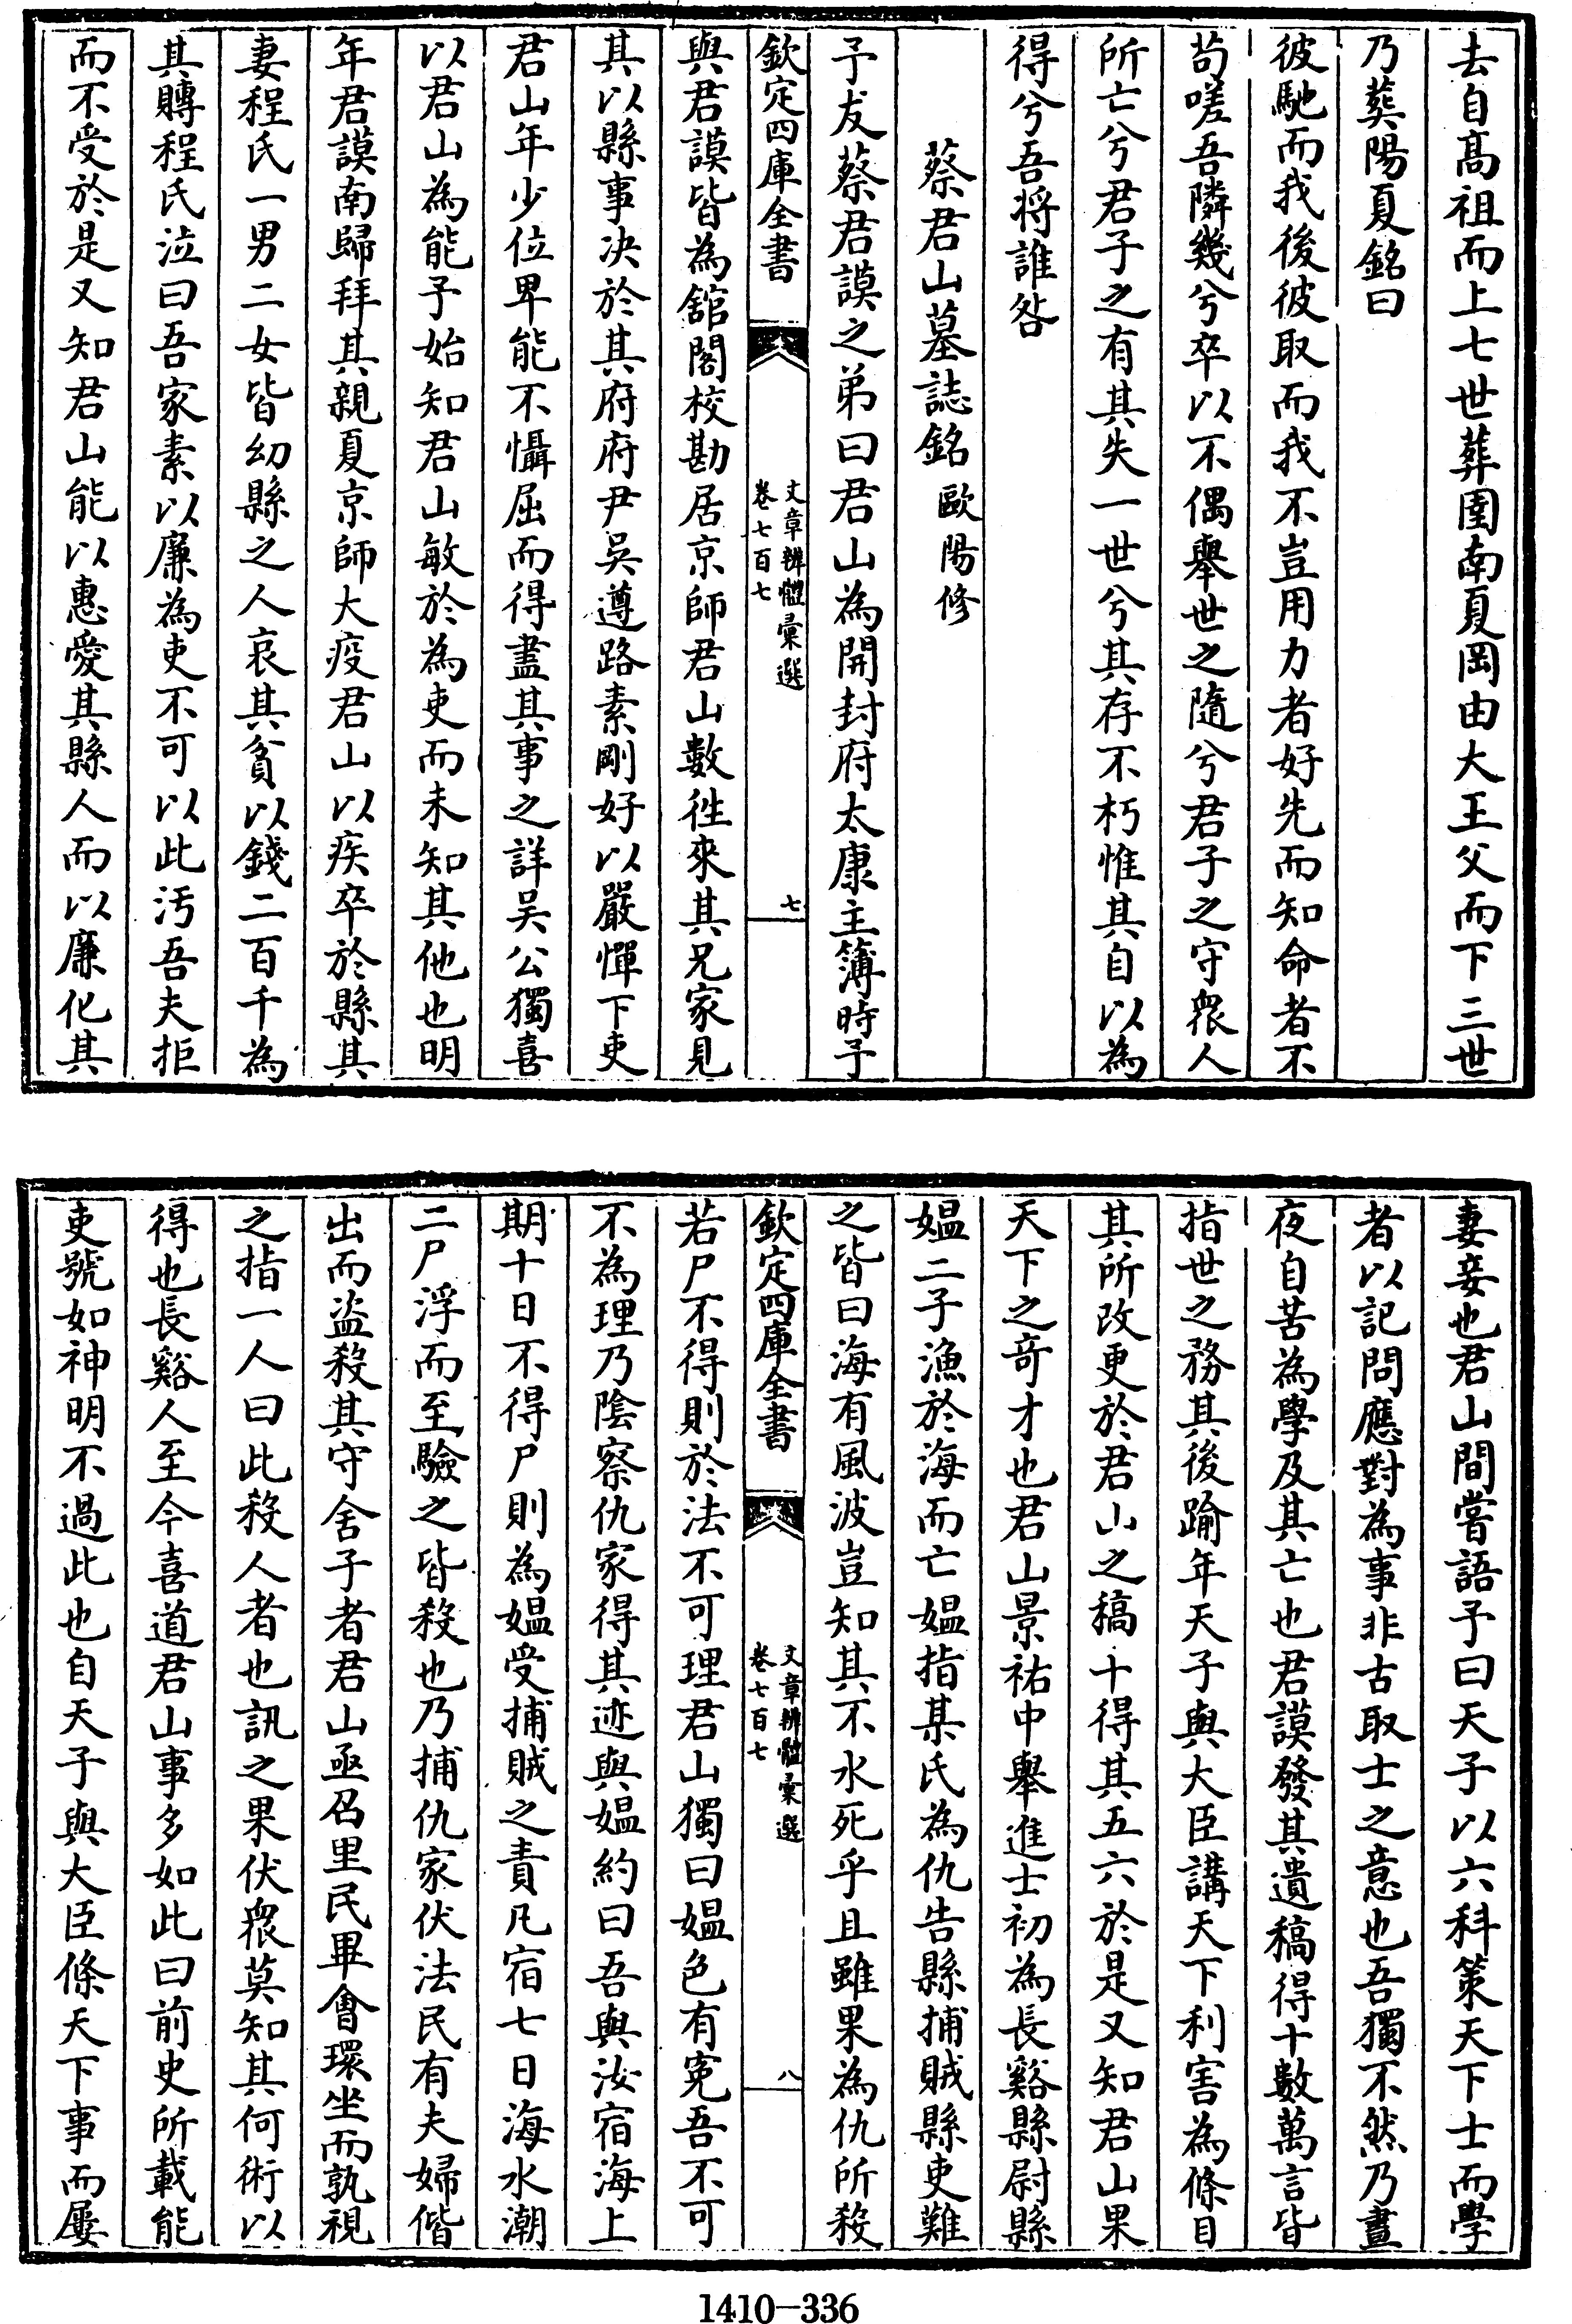 去自髙祖而上七世葬圉南夏岡由大王父而下三世
乃葬陽夏銘曰
彼馳而我後彼取而我不豈用力者好先而知命者不
茍嗟吾隣幾兮卒以不偶舉世之隨兮君子之守衆人
所亡兮君子之有其失一世兮其存不朽惟其自以為
得兮吾将誰咎
蔡君山墓誌銘 歐陽修
予友蔡君謨之弟曰君山為開封府太康主簿時予
欽定四庫全書 文章辨體彙選 卷七百七 七
與君謨皆為舘閣校勘居京師君山數徃來其兄家見
其以縣事决於其府府尹吳遵路素剛好以嚴憚下吏
君山年少位卑能不懾屈而得盡其事之詳吳公獨喜
以君山為能予始知君山敏於為吏而未知其他也明
年君謨南歸拜其親夏京師大疫君山以疾卒於縣其
妻程氏一男二女皆幼縣之人哀其貧以錢二百千為
其賻程氏泣曰吾家素以廉為吏不可以此汚吾夫拒
而不受於是又知君山能以惠愛其縣人而以廉化其
妻妾也君山間嘗語予曰天子以六科策天下士而學
者以記問應對為事非古取士之意也吾獨不然乃晝
夜自苦為學及其亡也君謨發其遺稿得十數萬言皆
指世之務其後踰年天子與大臣講天下利害為條目
其所改更於君山之稿十得其五六於是又知君山果
天下之竒才也君山景祐中舉進士初為長谿縣尉縣
媪二子漁於海而亡媪指某氏為仇告縣捕賊縣吏難
之皆曰海有風波豈知其不水死乎且雖果為仇所殺
欽定四庫全書 文章辨體彙選 卷七百七 八
若尸不得則於法不可理君山獨曰媪色有寃吾不可
不為理乃陰察仇家得其迹與媪約曰吾與汝宿海上
期十日不得尸則為媪受捕賊之責凡宿七日海水潮
二尸浮而至驗之皆殺也乃捕仇家伏法民有夫婦偕
出而盗殺其守舍子者君山亟召里民畢會環坐而孰視
之指一人曰此殺人者也訊之果伏衆莫知其何術以
得也長谿人至今喜道君山事多如此曰前史所載能
吏號如神明不過此也自天子與大臣條天下事而屢
1410–336